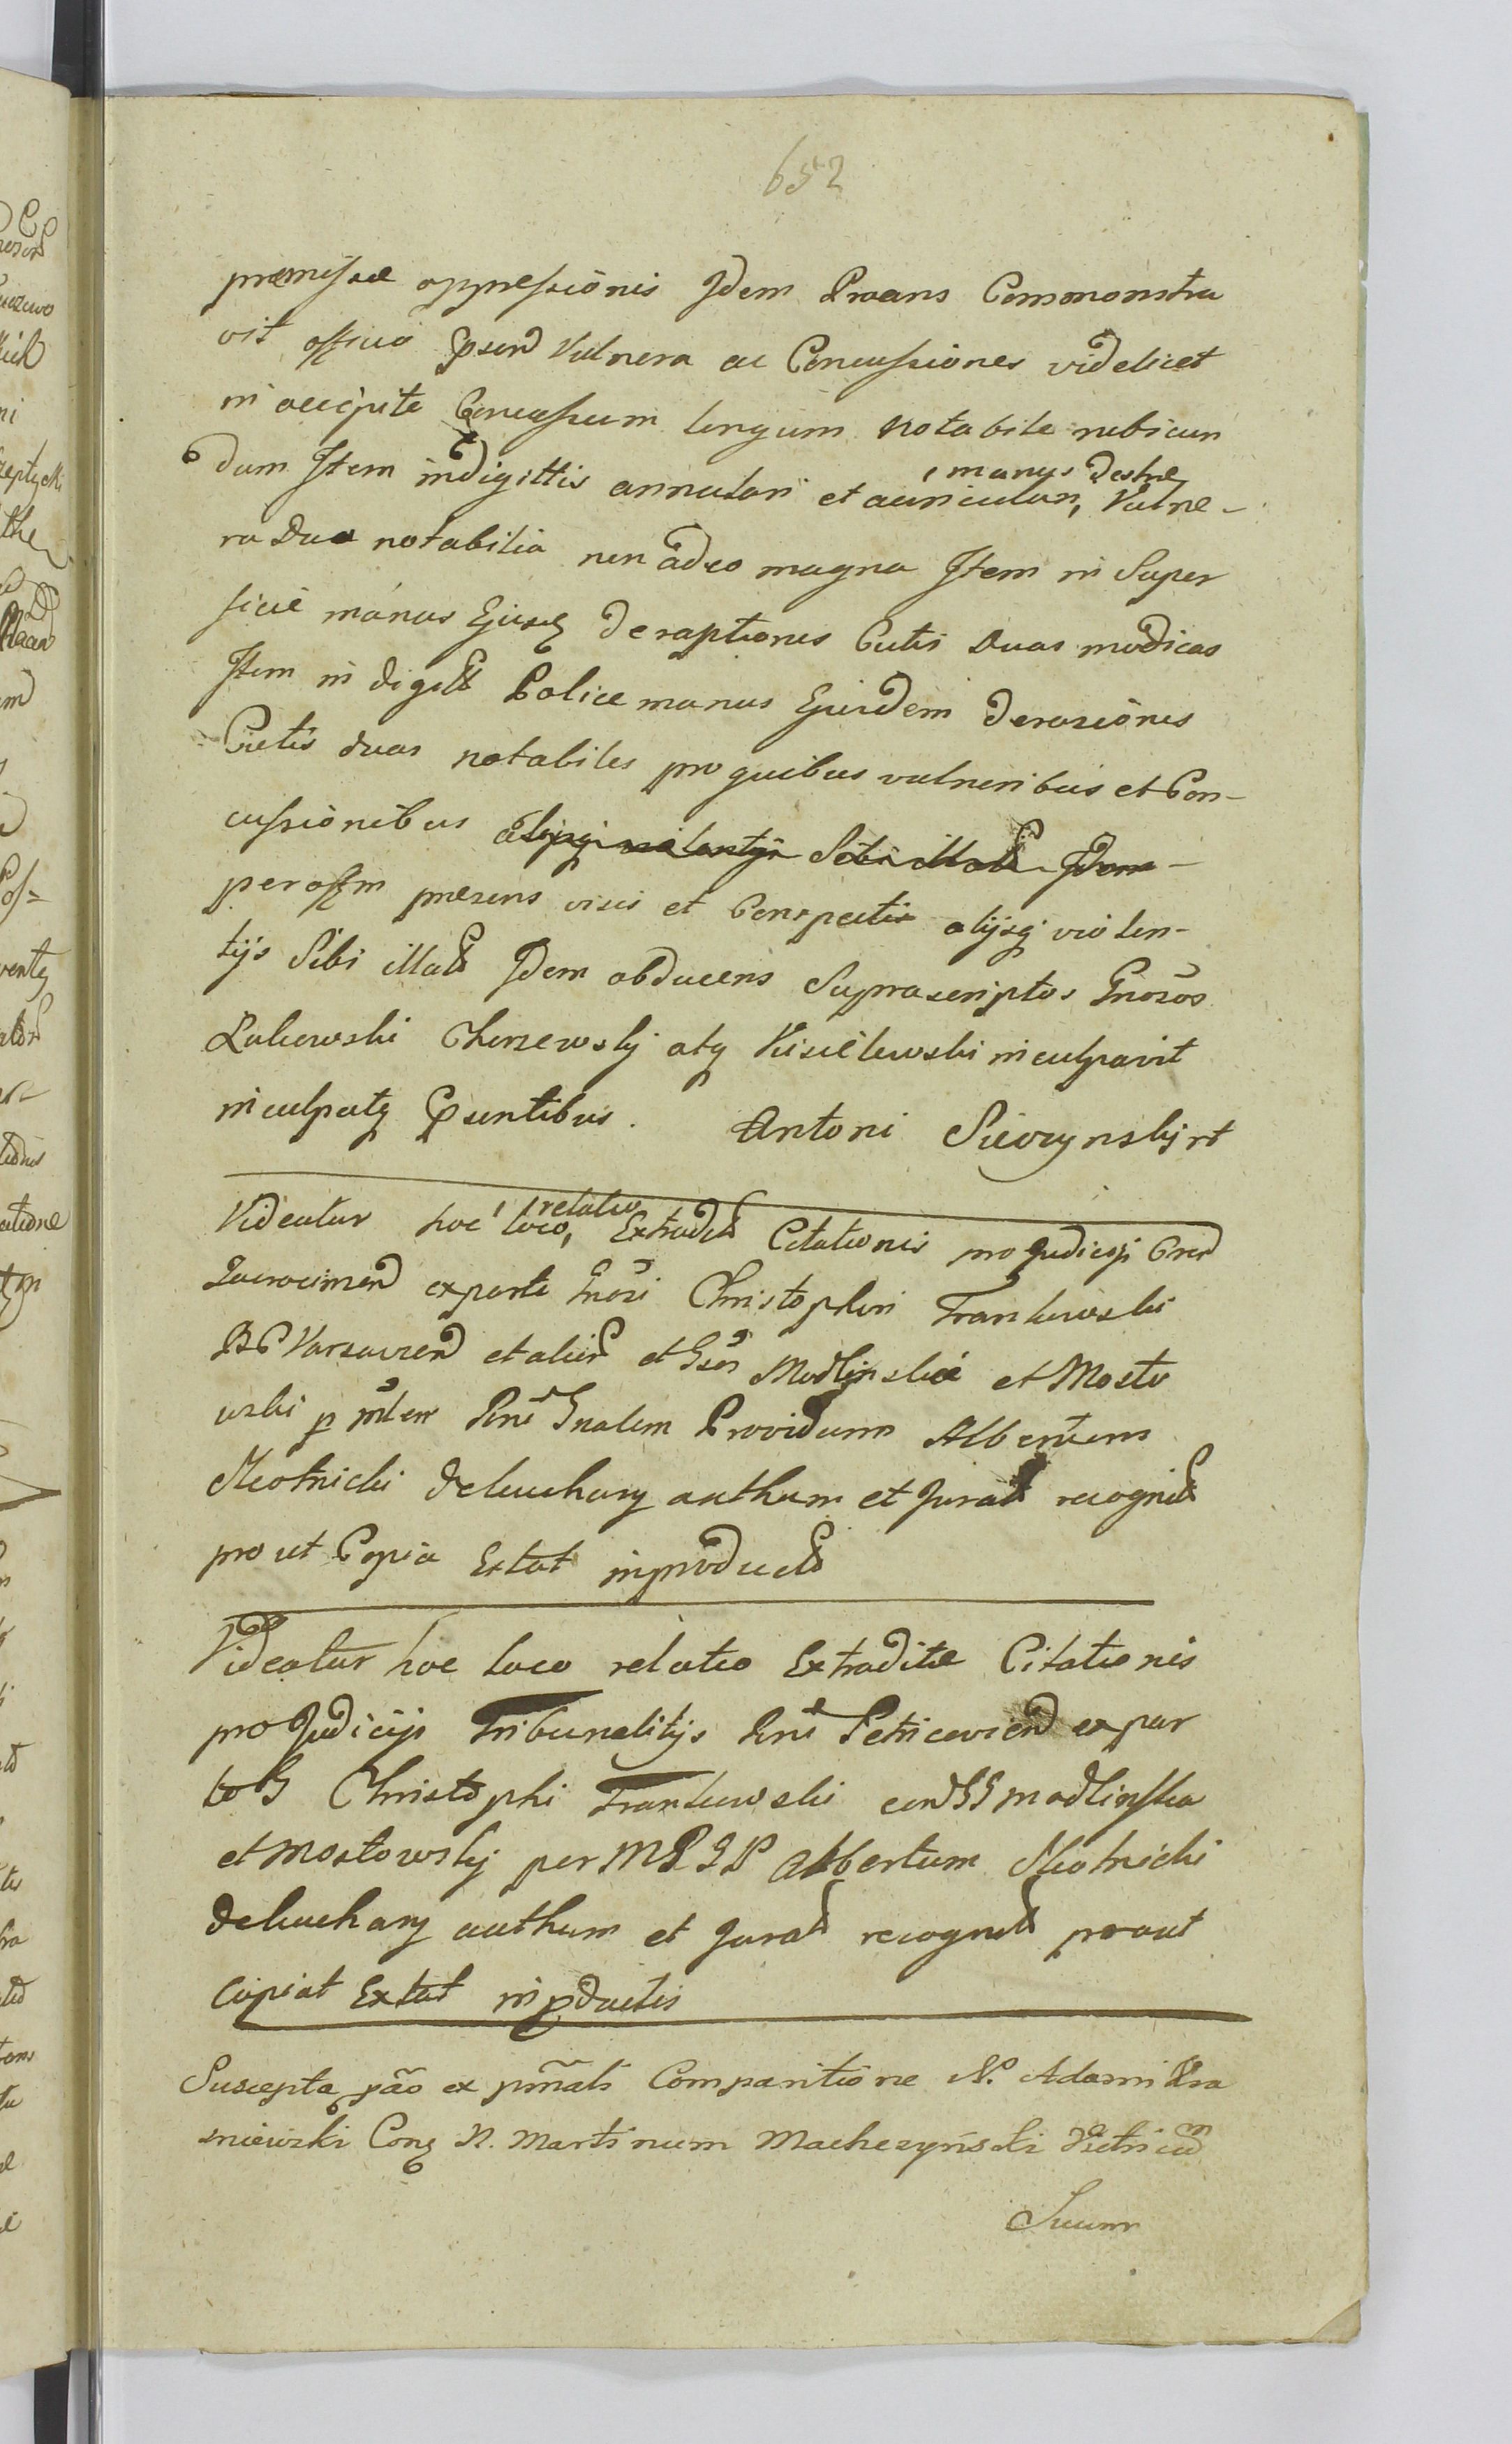 652
premissae oppressionis Idem Praans Commonstra
vit officio psend Vulnera ac Concussiones videlicet
in occipite Concussum longum notabile rubicun
dum Item in digittis annulari et auriculari, manus dextrae Vulne-
ra Duo notabilia non adeo magna Item in Super
ficie manus Ejusq deraptiones Cutis Duas modicas
Item in digitt Police manus Ejusdem derasiones
Cutis duas notabiles pro quibus vulneribus et Con-
cussionibus alijsq violentijs Sibi illatt Idem
per offm praesens visis et Conspectis alijsq violen-
tijs Sibi illatt Idem obducens Suprascriptos Gnosos
Lukowski Chorzewsky atq Kisielewski inculpavit
inculpatq psentibus. Antoni Sieczynsky rt
Videatur hoc loco, relatio Extradtt Citationis pro Judicijs Cren
ex parte Gnosi Christophori Frankowski
BC Varsavien et alior et Gsos Modlinskie et Mosto
wski p mlem Rni Gnalem Providum Albertum
Słotnicki de Luchary authum et Juratt recognitt
prout Copia Extat in productt
Videatur hoc loco relatio Extraditae Citationis
pro Judicijs Tribunalitijs Rni Petricovien ex par
te G Christophi Frankowski con GG Modlinska
et Mostowsky per MRGP Albertum Słotnicki
de Luchary authum et Juratt recognitt prout
Copiat Extat in pductis
Suscepta pão ex pmãli Comparitione N. Adami Kra
sniewski Conq N. Martinum Macheczyński
Suum